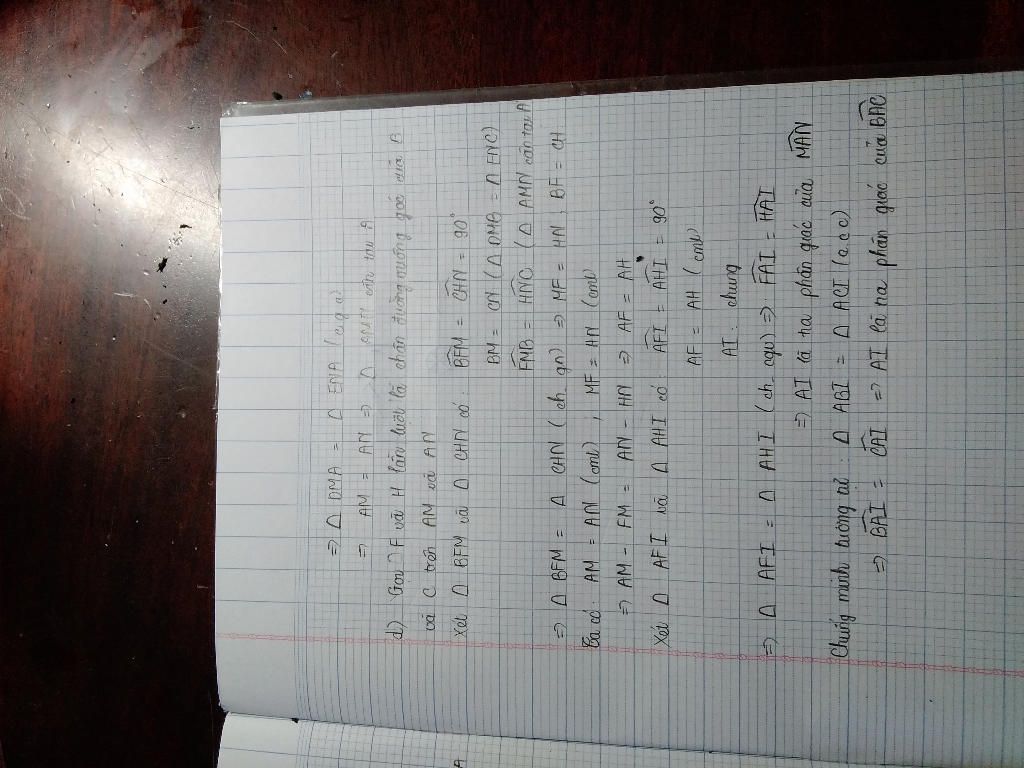 => Δ DMA = Δ ENA (c.g.c)
=> AM = AN => Δ AMN cân tại A
d) Gọi F và H lần lượt là chân đường vuông góc của B
và C trên AM và AN
Xét Δ BFM và Δ CHN có: BFM = CHN = 90°
BM = CN (Δ DMB = Δ ENC)
FMB = HNC (Δ AMN cân tại A
=> Δ BFM = Δ CHN (ch_gn) => MF = HN; BF = CH
Ta có: AM = AN (cmt); MF = HN (cmt)
=> AM - FM = AN - HN => AF = AH
Xét Δ AFI và Δ AHI có: AFI = AHI = 90°
AF = AH (cmt)
AI: chung
=> Δ AFI = Δ AHI (ch_cgv) => FAI = HAI
=> AI là tia phân giác của MAN
Chứng minh tương tự: Δ ABI = Δ ACI (c.c.c)
=> BAI = CAI => AI là tia phân giác của BAC
A